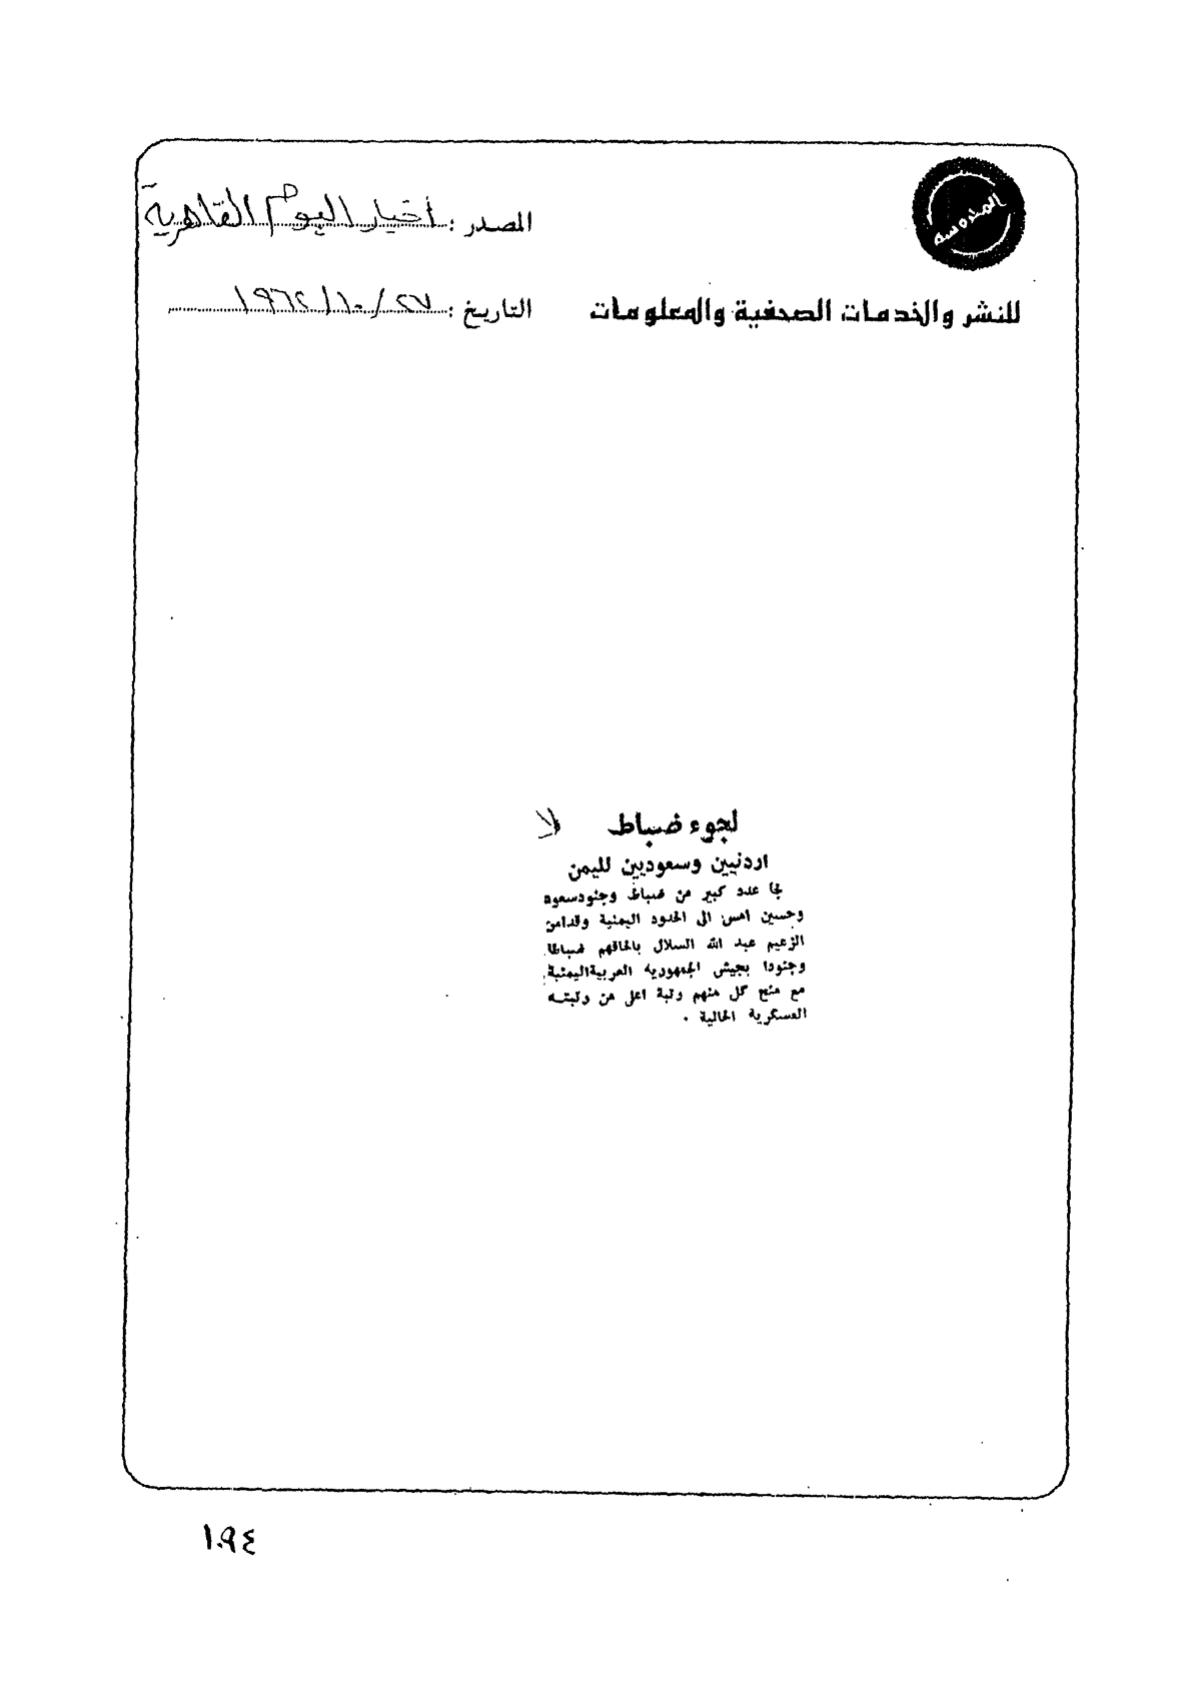 المحروسة
المصدر : أخبار اليوم القاهرية
للنشر والخدمات الصحفية والمعلومات
التاريخ : ٢٧/١٠/١٩٦٢
لجوء ضباط
اردنيين وسعوديين لليمن
لجا عدد كبير من ضباط وجنود سعود
وحسين امس الى الحدود اليمنية وقد امر
الزعيم عبد الله السلال بالحاقهم ضباطا
وجنودا بجيش الجمهورية العربية اليمنية
مع منح كل منهم رتبة اعلى من رتبته
العسكرية الحالية .
١٩٤